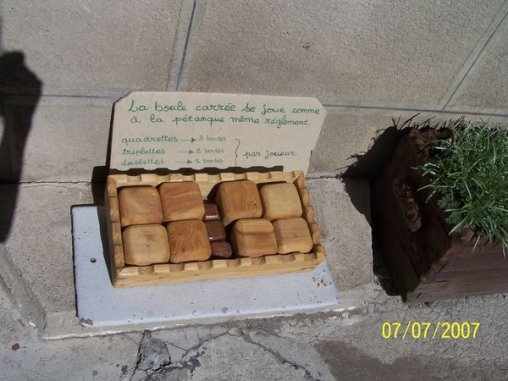 La boule carrée se joue comme
à la pétanque même règlement.
quadrettes → 2 boules
triplettes → 2 boules } par joueur.
doublettes → 3 boules
07/07/2007